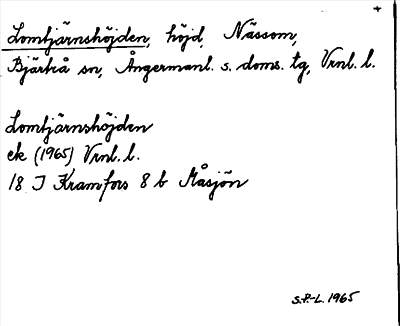 Lomtjärnshöjden, höjd, Nässom,
Bjärtrå sn, Ångermanl. s. doms. tg, Vrnl. l.
Lomtjärnshöjden
ek (1965) Vrnl. l.
18 J Kramfors 8 b Måsjön
S.P.-L. 1965